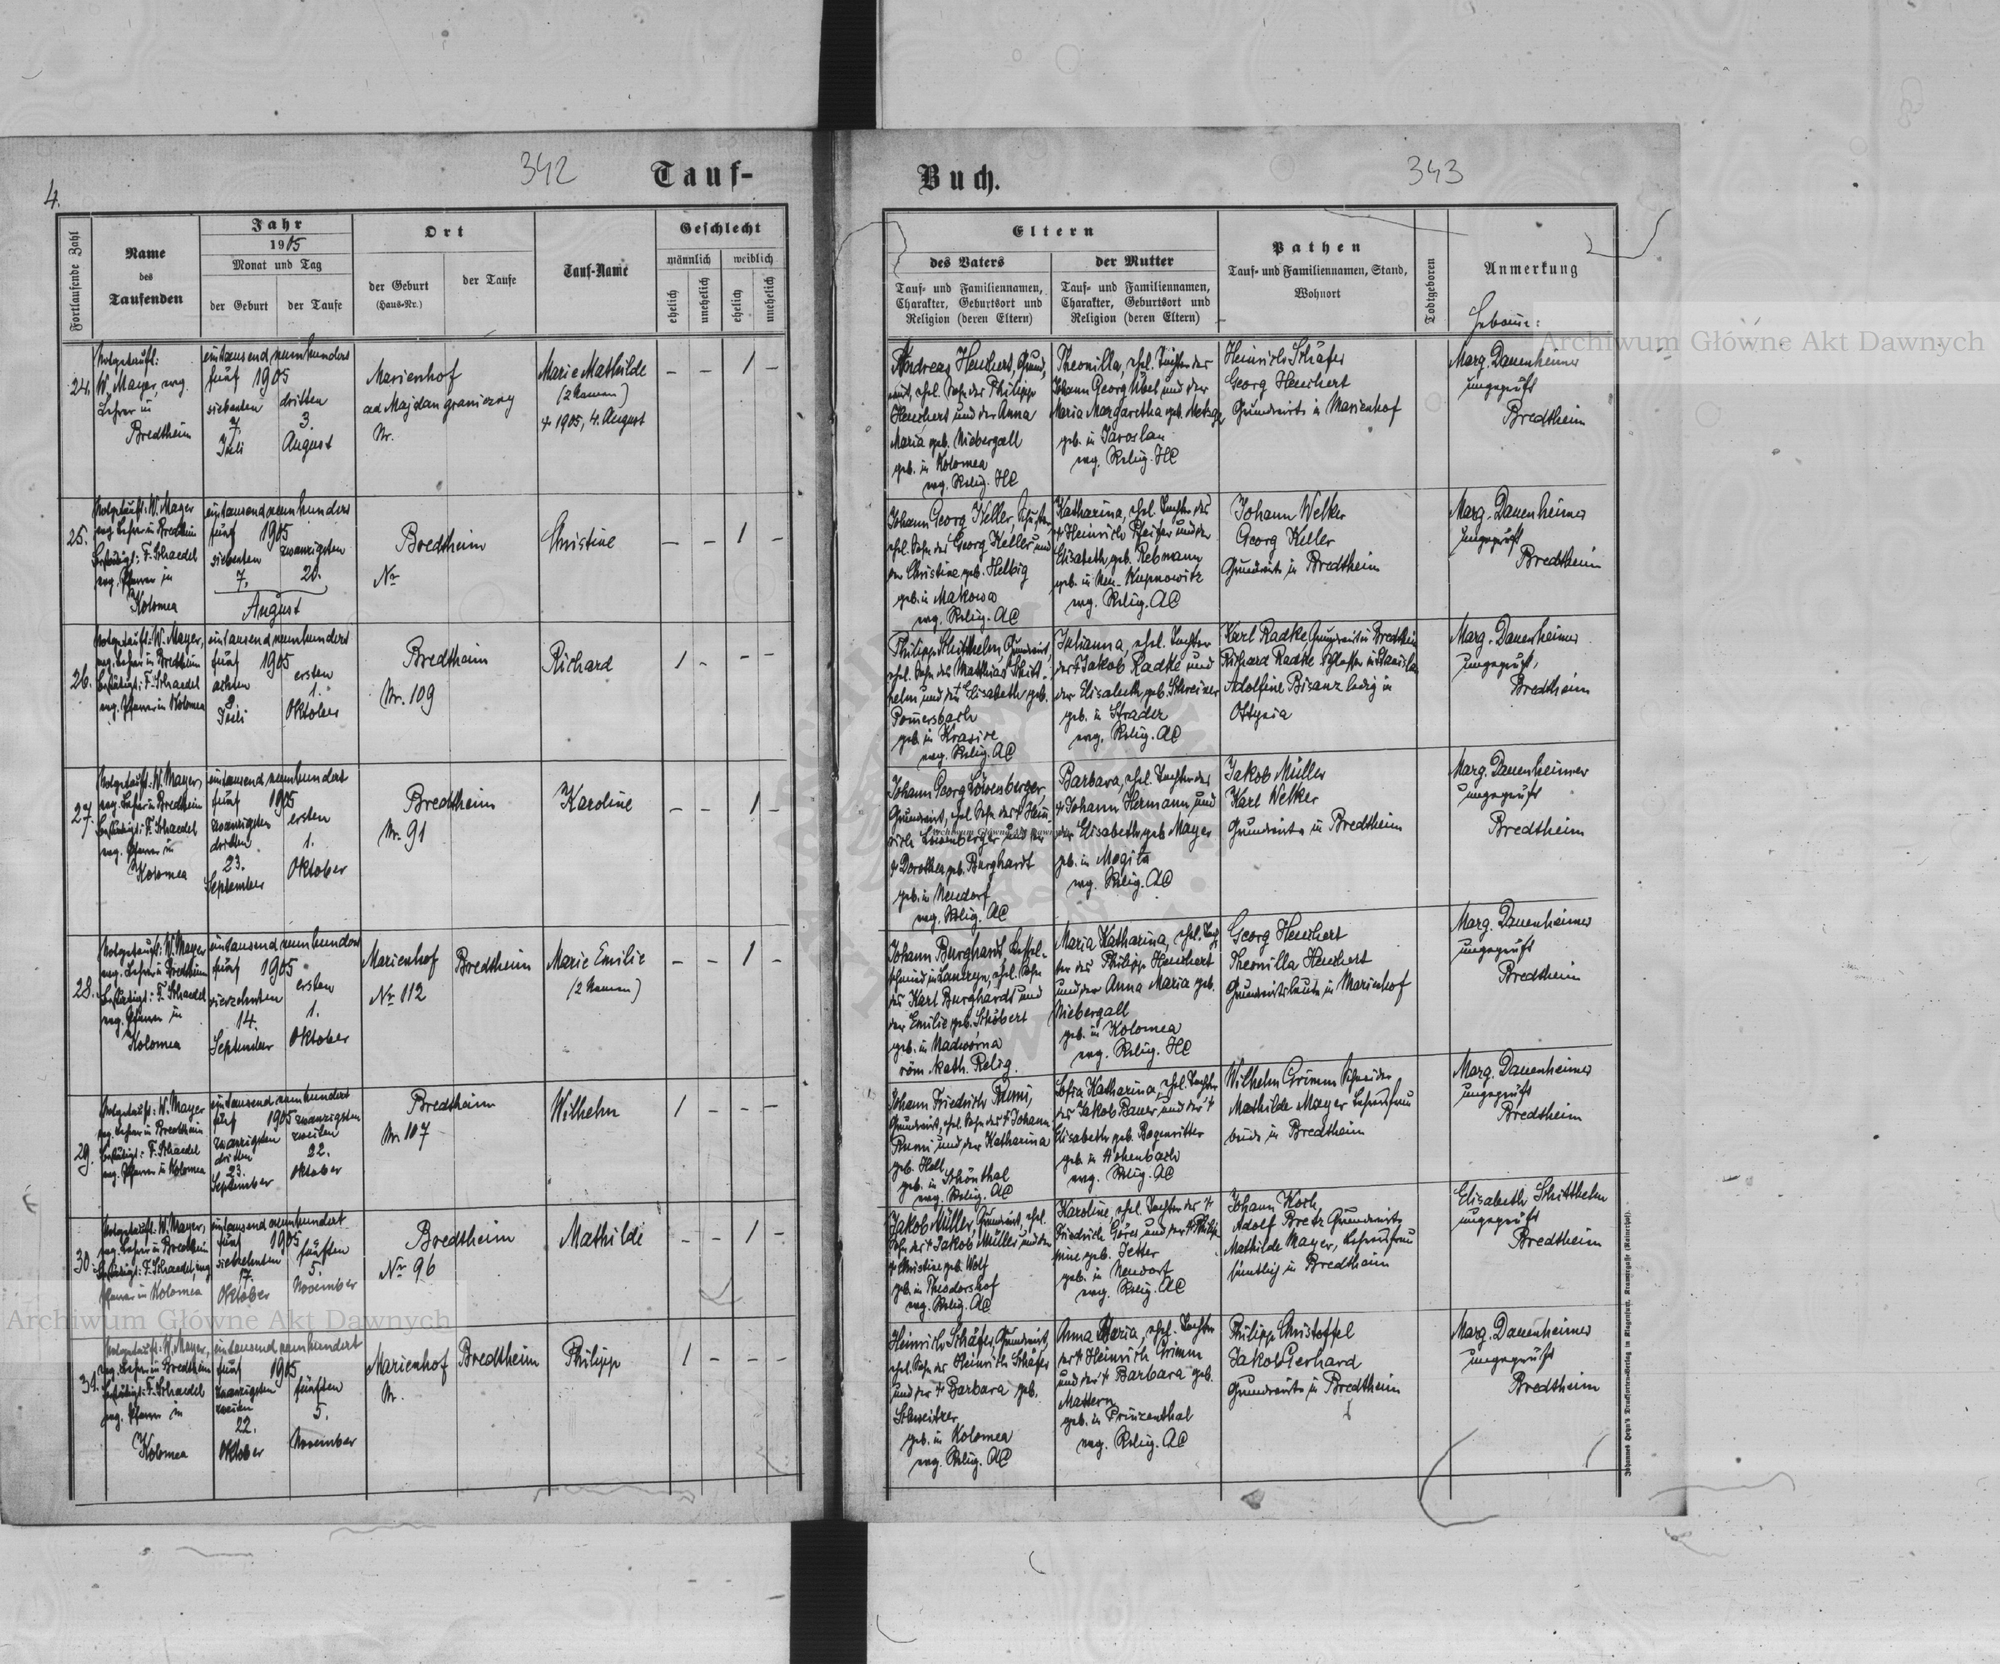 342
Tauf-
4.
Fortlaufende Zahl
Name
des
Taufenden
Jahr
1905
Monat und Tag
der Geburt
der Taufe
Ort
der Geburt
(Haus-Nr.)
der Taufe
Tauf-Name
Geschlecht
männlich
weiblich
ehelich
unehelich
ehelich
unehelich
24.
Notgetauft:
W. Mayer, evg.
Lehrer in
Bredtheim
eintausend neunhundert
fünf 1905
siebenten
7.
Juli
dritten
3.
August
Marienhof
ad Majdan graniczny
Nr.
Marie Mathilde
(2 Namen)
† 1905, 4. August
– – 1 –
25.
Notgetauft: W. Mayer
evg. Lehrer in Bredtheim
bestätigt: F. Schaedel
evg. Pfarrer in
Kolomea
eintausend neunhundert
fünf 1905
siebenten
7.
zwanzigsten
20.
August
Bredtheim
Nr
Christine
– – 1 –
26.
Notgetauft: W. Mayer,
evg. Lehrer in Bredtheim
bestätigt: F. Schaedel
evg. Pfarrer in Kolomea
eintausend neunhundert
fünf 1905
achten
8.
Juli
ersten
1.
Oktober
Bredtheim
Nr. 109
Richard
1 – – –
27.
Notgetauft: W. Mayer,
evg. Lehrer in Bredtheim
bestätigt: F. Schaedel
evg. Pfarrer in
Kolomea
eintausend neunhundert
fünf 1905
zwanzigsten
dritten
23.
September
ersten
1.
Oktober
Bredtheim
Nr. 91
Karoline
– – 1 –
28.
Notgetauft: W. Mayer
evg. Lehrer in Bredtheim
bestätigt: F. Schaedel
evg. Pfarrer in
Kolomea
eintausend neunhundert
fünf 1905
vierzehnten
14.
September
ersten
1.
Oktober
Marienhof
Nr 112
Bredtheim
Marie Emilie
(2 Namen)
– – 1 –
29.
Notgetauft: W. Mayer
evg. Lehrer in Bredtheim
bestätigt: F. Schaedel
evg. Pfarrer in Kolomea
eintausend neunhundert
fünf 1905
zwanzigsten
dritten
23.
September
zwanzigsten
zweiten
22.
Oktober
Bredtheim
Nr. 107
Wilhelm
1 – – –
30.
Notgetauft: W. Mayer,
evg. Lehrer in Bredtheim
bestätigt: F. Schaedel, evg
Pfarrer in Kolomea
eintausend neunhundert
fünf 1905
siebzehnten
17.
Oktober
fünften
5.
November
Bredtheim
Nr 96
Mathilde
– – 1 –
31.
Notgetauft: W. Mayer,
evg. Lehrer in Bredtheim
bestätigt: F. Schaedel
evg. Pfarrer in
Kolomea
eintausend neunhundert
fünf 1905
zwanzigsten
zweiten
22.
Oktober
fünften
5.
November
Marienhof
Nr.
Bredtheim
Philipp
1 – – –
Buch.
343
Eltern
des Vaters
Tauf- und Familiennamen,
Charakter, Geburtsort und
Religion (deren Eltern)
der Mutter
Tauf- und Familiennamen,
Charakter, Geburtsort und
Religion (deren Eltern)
Pathen
Tauf- und Familiennamen, Stand,
Wohnort
Todtgeboren
Anmerkung
Andreas Heuchert, Grund-
wirt, ehel. Sohn des Philipp
Heuchert und der Anna
Maria geb. Niebergall
geb. in Kolomea
evg. Relig. HC
Theonilla, ehel. Tochter des
Johann Georg Übel und der
Maria Margaretha geb.
geb. in Jaroslau
evg. Relig. HC
Heinrich Schäfer
Georg Heuchert
Grundwirte in Marienhof
Marg. Dauenheimer
ungeprüft
Bredtheim
Johann Georg Keller,
ehel. Sohn des Georg Keller und
der Christine geb. Helbig
geb. in Makowa
evg. Relig. AC
Katharina, ehel. Tochter des
† Heinrich Pfeifer und der
Elisabeth geb. Rebmann
geb. in Neu-Kupnowitz
evg. Relig. AC
Johann Welker
Georg Keller
Grundwirte in Bredtheim
Marg. Dauenheimer
ungeprüft
Bredtheim
Philipp Schitthelm, Grundwirt,
ehel. Sohn des Matthias Schitt-
helm und der Elisabeth geb.
Pomersbach
geb. in Krasive
evg. Relig. AC
Julianna, ehel. Tochter
des † Jakob Radke und
der Elisabeth geb. Schreiner
geb. in Stradez
evg. Relig. AC
Karl Radke Grundwirt in Bredtheim
Richard Radke Schlosser in Stanislau
Adolfine Bisanz ledig in
Ottynia
Marg. Dauenheimer
ungeprüft,
Bredtheim
Johann Georg Löwenberger
Grundwirt, ehel. Sohn des † Hein-
rich Löwenberger und der
† Dorothea geb. Burghardt
geb. in Neudorf
evg. Relig. AC
Barbara, ehel. Tochter des
† Johann Hermann und
der Elisabeth geb. Mayer
geb. in Mogila
evg. Relig. AC
Jakob Müller
Karl Welker
Grundwirte in Bredtheim
Marg. Dauenheimer
ungeprüft
Bredtheim
Johann Burghardt, Kessel-
schmied in Lanczyn, ehel. Sohn
des Karl Burghardt und
der Emilie geb. Schöbert
geb. in Nadworna
röm. kath. Relig.
Maria Katharina, ehel. Toch-
ter des Philipp Heuchert
und der Anna Maria geb.
Niebergall
geb. in Kolomea
evg. Relig. HC
Georg Heuchert
Theonilla Heuchert
Grundwirtsleute in Marienhof
Marg. Dauenheimer
ungeprüft
Bredtheim
Johann Friedrich Rumi,
Grundwirt, ehel. Sohn des † Johann
Rumi und der Katharina
geb. Holl
geb. in Schönthal
evg. Relig. AC
Sofia Katharina, ehel. Tochter
des Jakob Bauer und der †
Elisabeth geb. Bogenritter
geb. in Hohenbach
evg. Relig. AC
Wilhelm Grimm Schneider
Mathilde Mayer Lehrersfrau
beide in Bredtheim
Marg. Dauenheimer
ungeprüft
Bredtheim
Jakob Müller, Grundwirt, ehel.
Sohn des † Jakob Müller und der
† Christine geb. Wolf
geb. in Theodorshof
evg. Relig. AC
Karoline, ehel. Tochter des †
Friedrich Göres und der † Philip-
pine geb. Jetter
geb. in Neudorf
evg. Relig. AC
Johann Koch
Adolf Bretz Grundwirte
Mathilde Mayer, Lehrersfrau
sämtlich in Bredtheim
Elisabeth Schitthelm
ungeprüft
Bredtheim
Heinrich Schäfer, Grundwirt,
ehel. Sohn des Heinrich Schäfer
und der † Barbara geb.
Schweitzer
geb. in Kolomea
evg. Relig. AC
Anna Maria, ehel. Tochter
des † Heinrich Grimm
und der † Barbara geb.
Mattern
geb. in Prinzenthal
evg. Relig. AC
Philipp Christoffel
Jakob Gerhard
Grundwirte in Bredtheim
Marg. Dauenheimer
ungeprüft
Bredtheim
Archiwum Główne Akt Dawnych
Archiwum Główne Akt Dawnych
Archiwum Główne Akt Dawnych